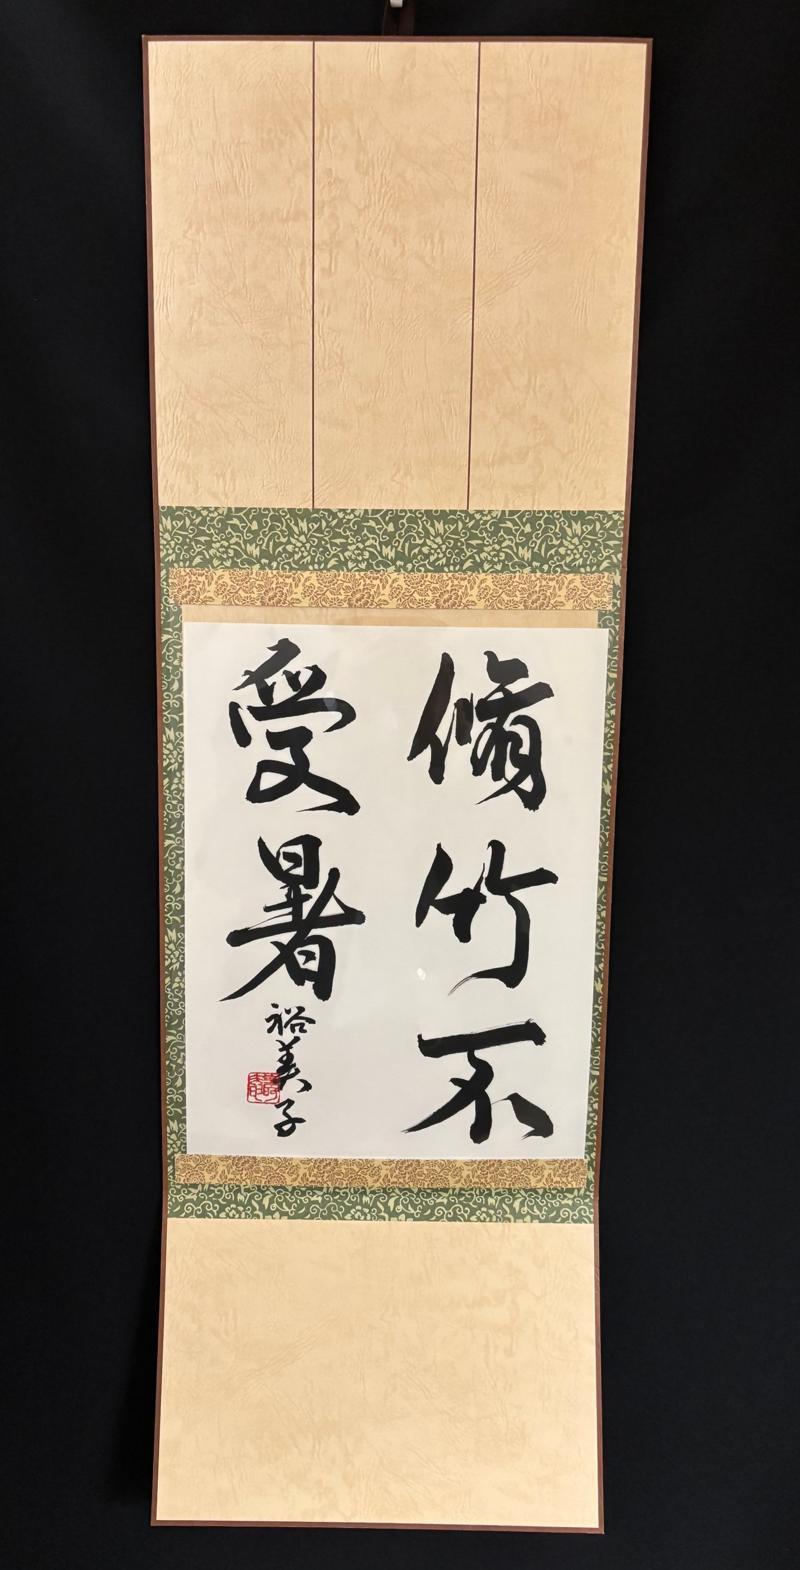 脩竹不
受暑
裕美子